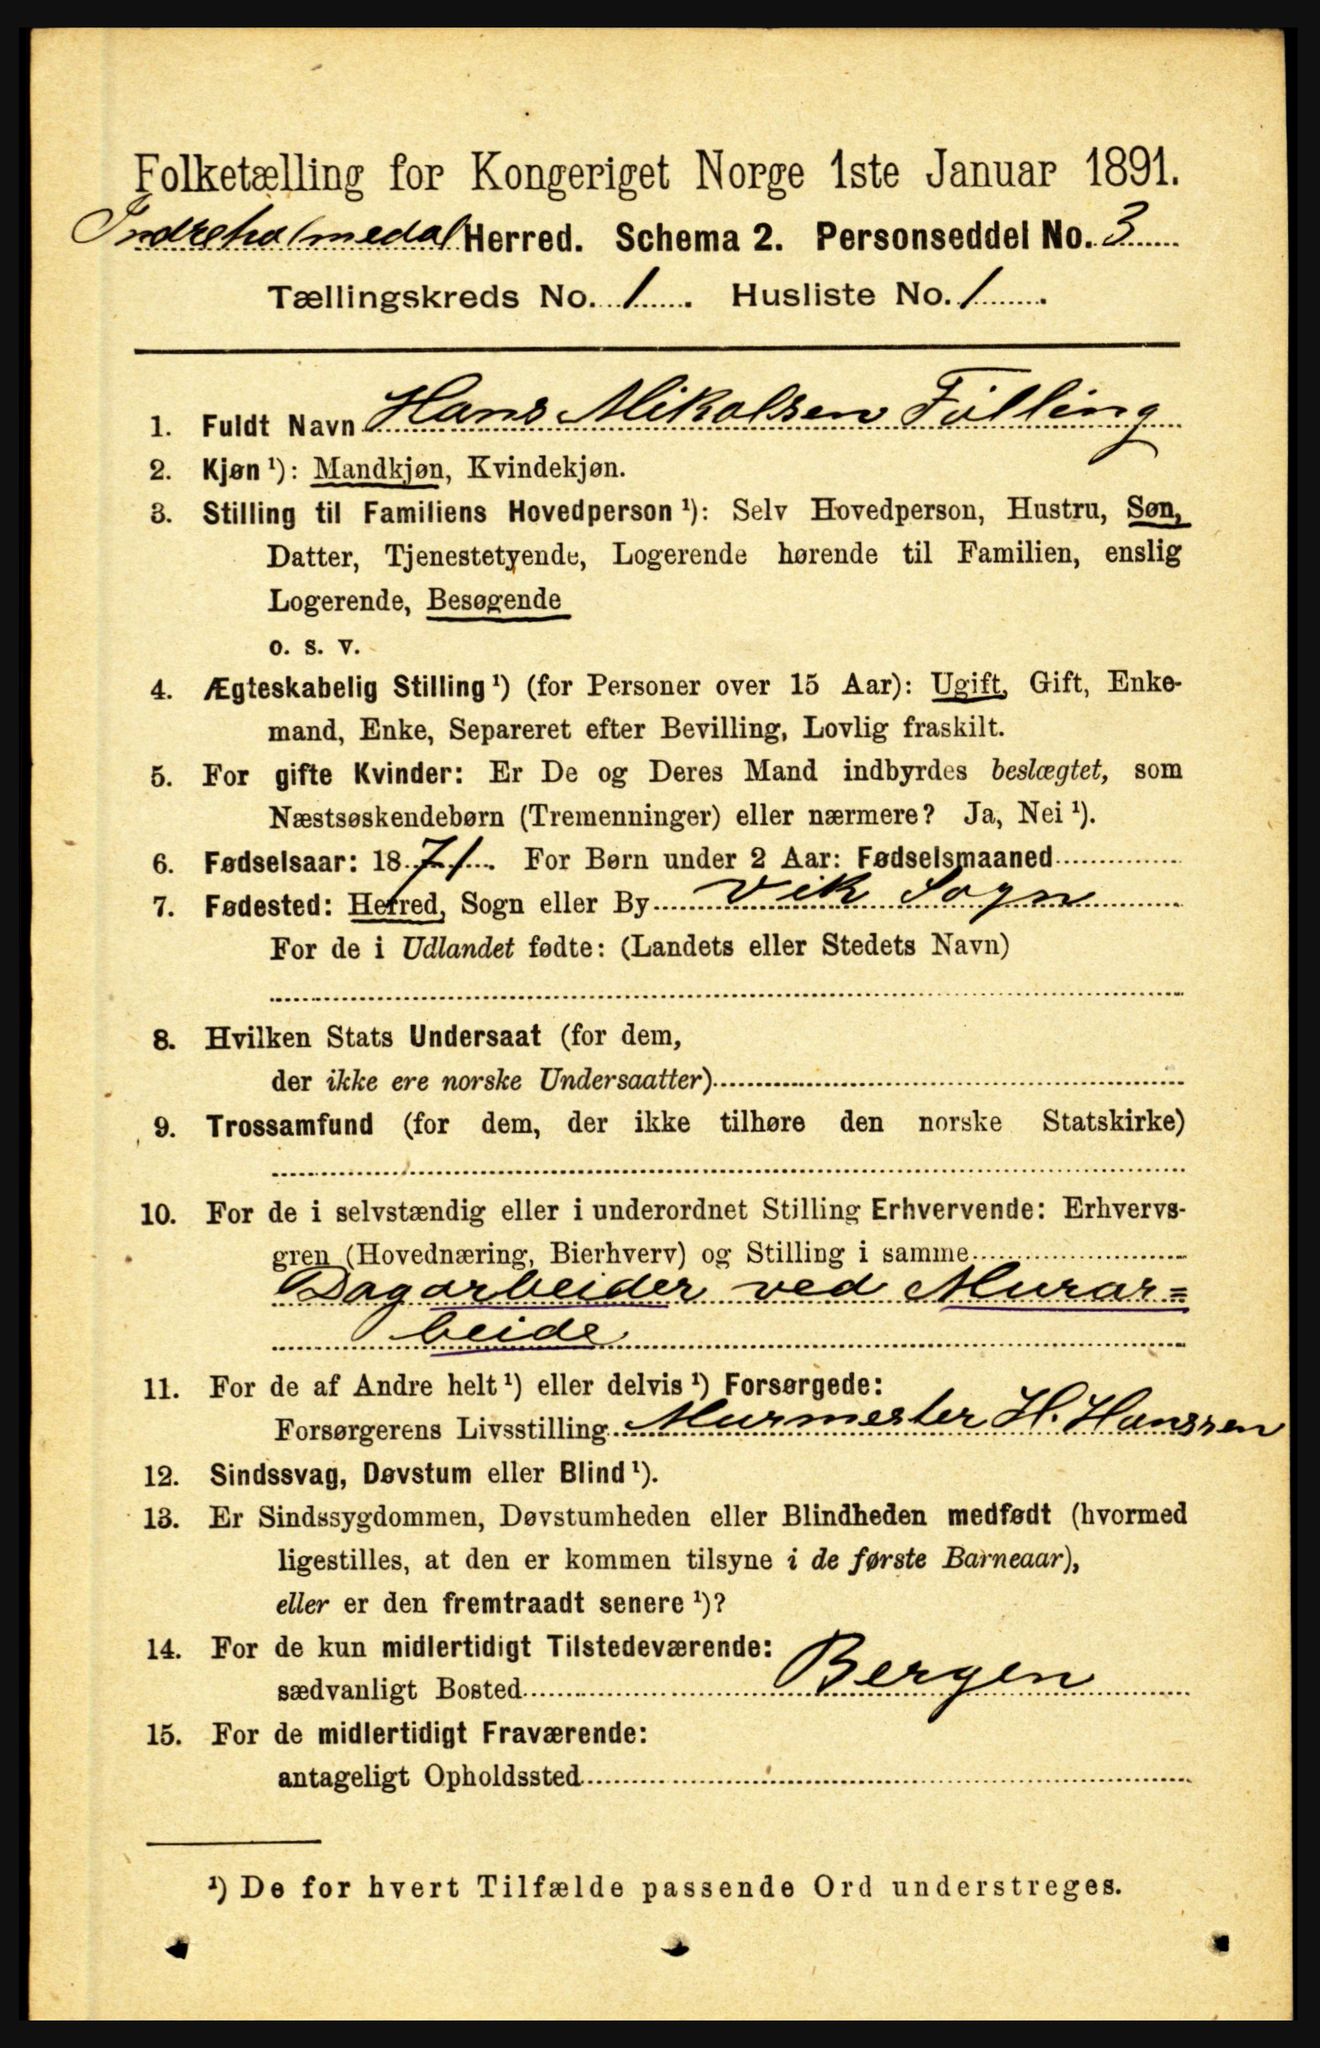 Folketælling for Kongeriget Norge 1ste Januar 1891.
Indreholmedal Herred. Schema 2. Personseddel No. 3
Tællingskreds No. 1. Husliste No. 1.
1. Fuldt Navn Hans Mikalsen Fölling
2. Kjøn ¹): Mandkjøn, Kvindekjøn.
3. Stilling til Familiens Hovedperson ¹): Selv Hovedperson, Hustru, Søn,
Datter, Tjenestetyende, Logerende hørende til Familien, enslig
Logerende, Besøgende
o. s. v.
4. Ægteskabelig Stilling ¹) (for Personer over 15 Aar): Ugift, Gift, Enke-
mand, Enke, Separeret efter Bevilling, Lovlig fraskilt.
5. For gifte Kvinder: Er De og Deres Mand indbyrdes beslægtet, som
Næstsøskendebørn (Tremenninger) eller nærmere? Ja, Nei ¹).
6. Fødselsaar: 1871. For Børn under 2 Aar: Fødselsmaaned
7. Fødested: Herred, Sogn eller By Vik Sogn
For de i Udlandet fødte: (Landets eller Stedets Navn)
8. Hvilken Stats Undersaat (for dem,
der ikke ere norske Undersaatter)
9. Trossamfund (for dem, der ikke tilhøre den norske Statskirke)
10. For de i selvstændig eller i underordnet Stilling Erhvervende: Erhvervs-
gren (Hovednæring, Bierhverv) og Stilling i samme
Dagarbeider ved Murar=
beide
11. For de af Andre helt ¹) eller delvis ¹) Forsørgede:
Forsørgerens Livsstilling Murmester H. Hanssen
12. Sindssvag, Døvstum eller Blind ¹).
13. Er Sindssygdommen, Døvstumheden eller Blindheden medfødt (hvormed
ligestilles, at den er kommen tilsyne i de første Barneaar),
eller er den fremtraadt senere ¹)?
14. For de kun midlertidigt Tilstedeværende:
sædvanligt Bosted Bergen
15. For de midlertidigt Fraværende:
antageligt Opholdssted
¹) De for hvert Tilfælde passende Ord understreges.